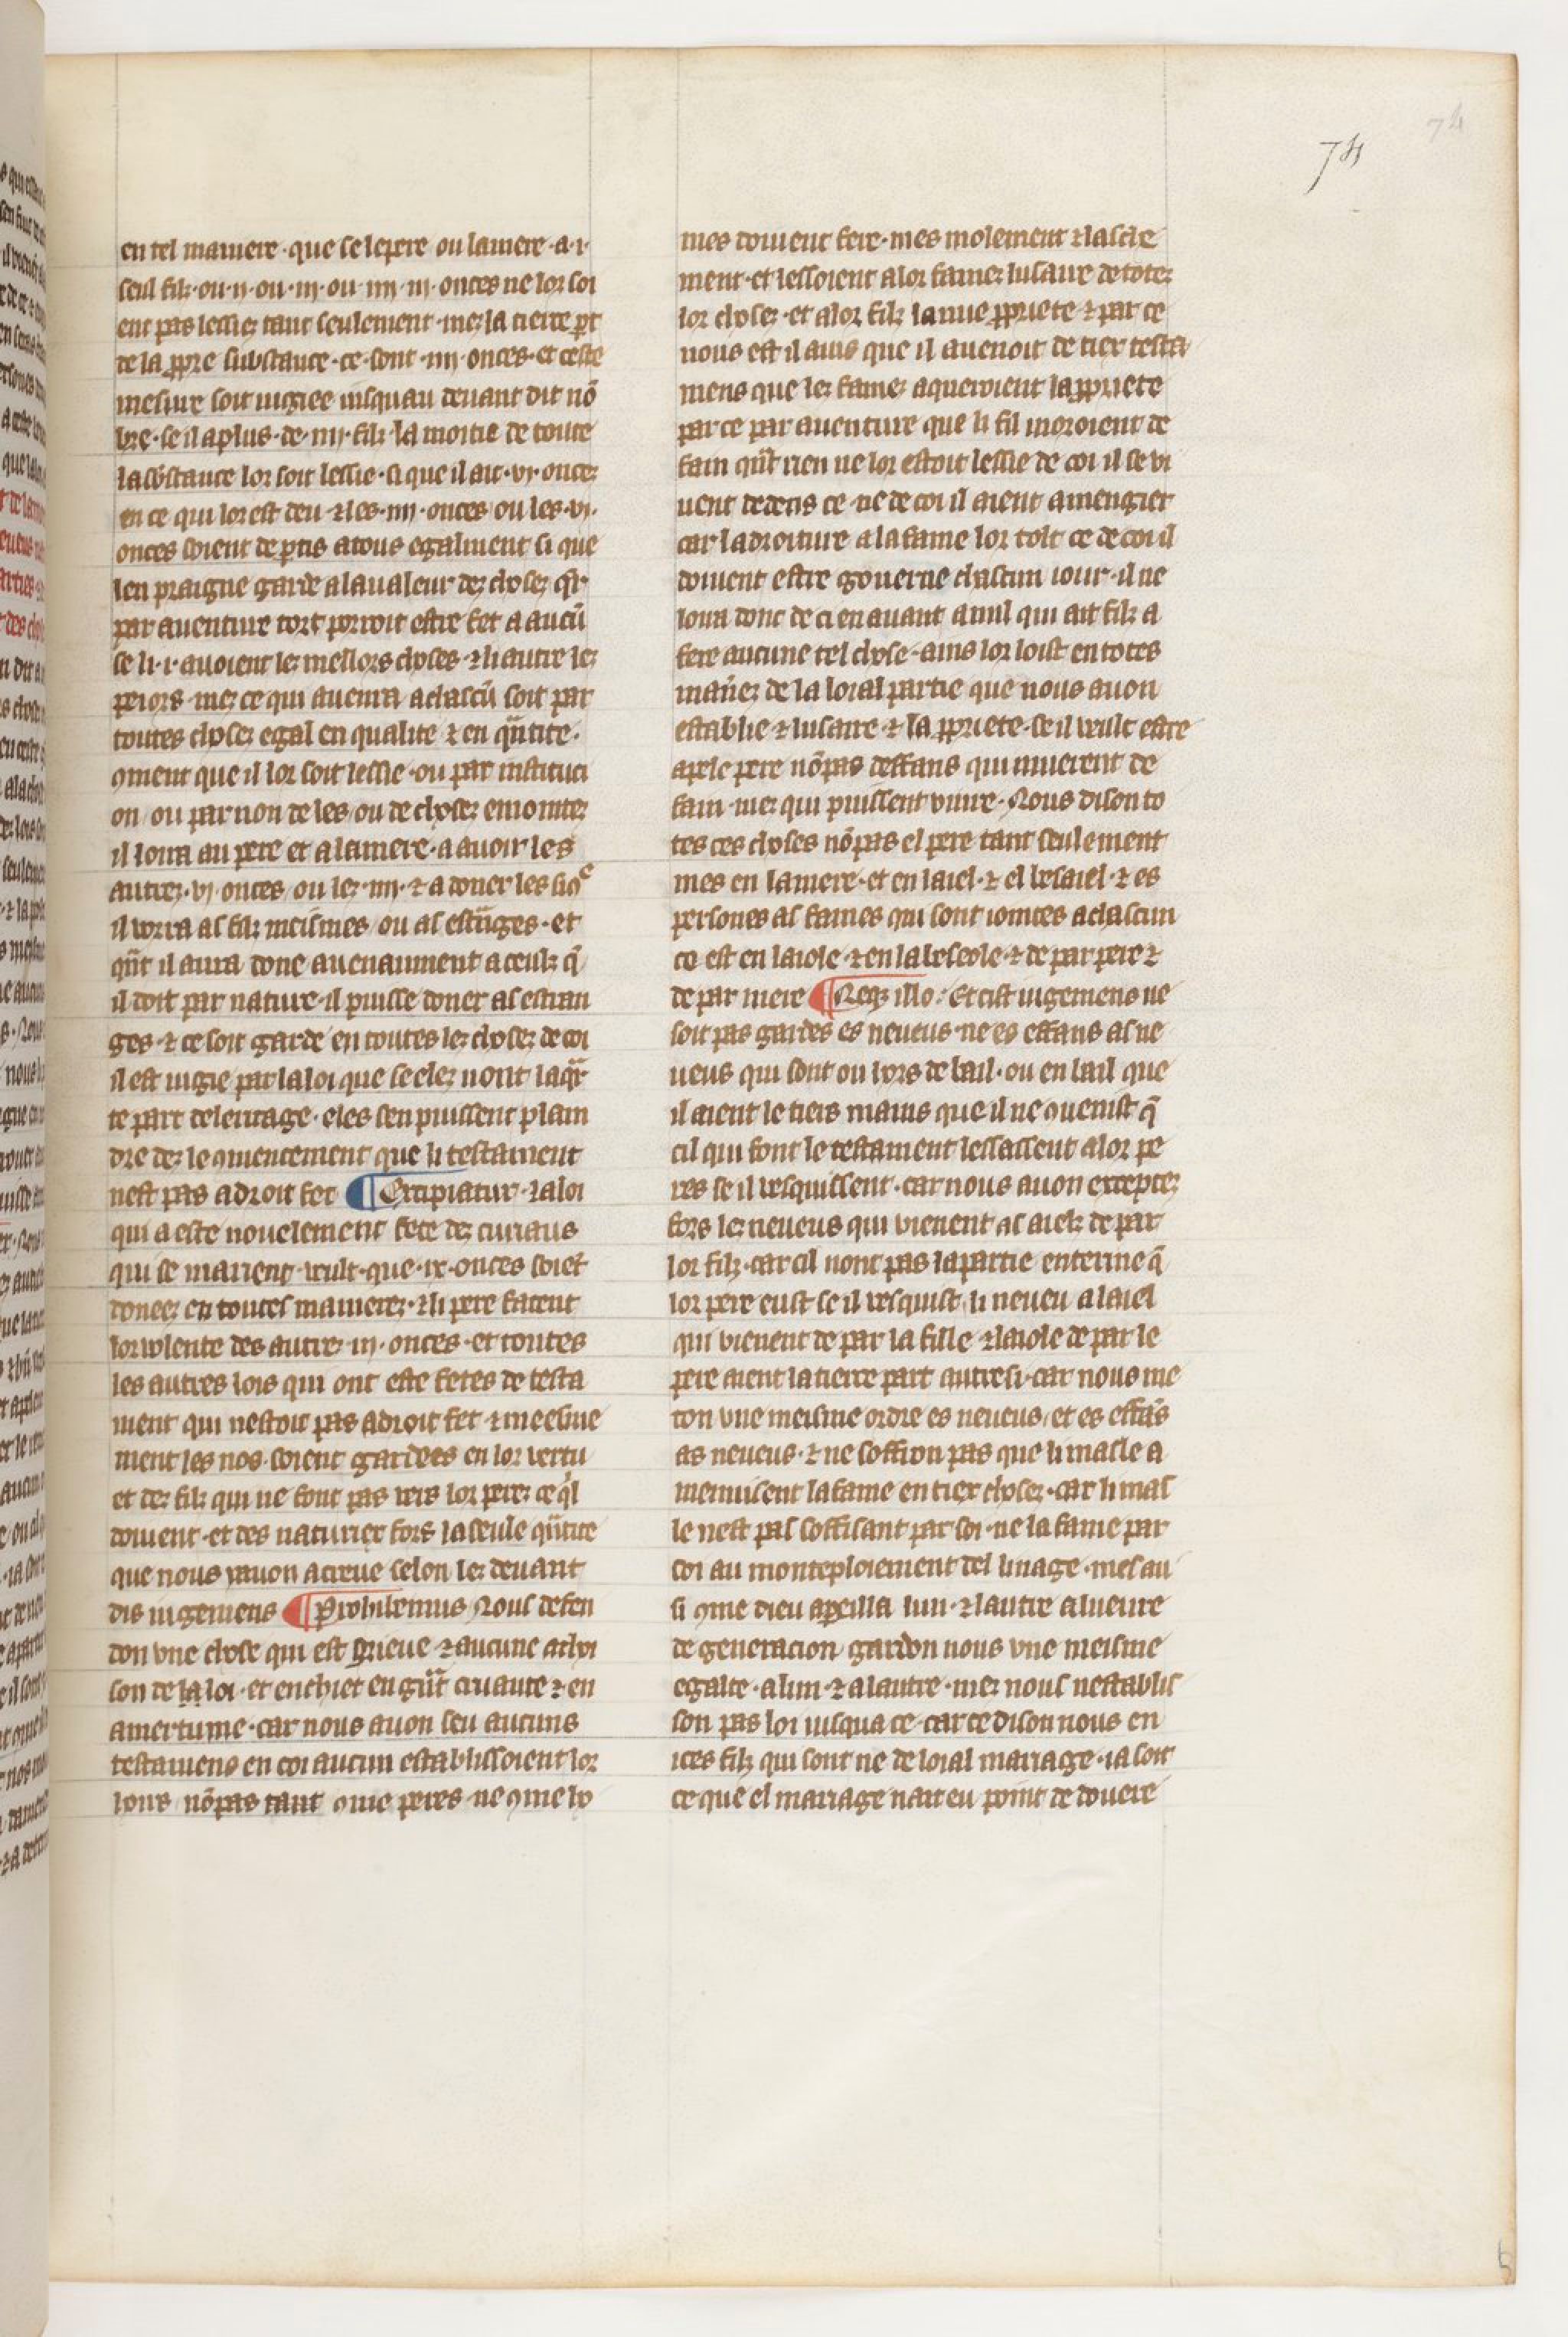 74
74
en tel maniere · que se le pere ou la mere · a · i ·
seul filz · ou · ii · ou · iii · ou · iiii · iii · onces ne lor soi
ent pas lessiez tant seulement · mez la tierce pt
de la ppre substance · ce · sont · iiii · onces · et ceste
mesure soit iugiee iusquau deuant dit nō
bre · se il a plus · de · iiii · filz · la moitie de toute
la sbstance lor soit lessie · si que il ait · vi · oncez
en ce qui lor est deu · ⁊ les · iiii · onces / ou les · vi ·
onces soient deptis a tous egalment si que
len praigne garde a la ualeur dez chosez qr
par auenture tort porroit estre fet a aucū
se li · i · auoient lez mellors choses · ⁊ li autre lez
peiors · mez ce qui auenra a chascū soit par
toutes chosez egal en qualite ⁊ en qntite ·
9ment que il lor soit lessie · ou par instituci
on / ou par non de les / ou de chosez enionitez
il loira au pere et a la mere · a auoir les
autrez · vi · onces / ou lez · iiii · ⁊ a doner les sic9
il vorra as filz meismes / ou as estnges · et
qnt il aura done auenaument a ceulz q̄
il doit par nature · il puisse doner as estran
ges · ⁊ ce soit garde en toutes lez chosez de coi
il est iugie par la loi que se elez nont la qr
te part del eritage · eles sen puissent plain
dre dez le 9mencement que li testament
nest pas a droit fet ¶ Excipiatur · ⁊ la loi
qui a este nouelement fete dez curiaus
qui se marient · veult · que · ix · onces soiēt
doneez en toutes manierez · ⁊ li pere facent
lor volente des autrez · iii · onces · et toutes
les autres lois qui ont este fetes de testa
ment qui nestoit pas a droit fet ⁊ meesme
ment les nos · soient gardees en lor vertu
et dez filz qui ne font pas vers lor perez ce ql
doiuent · et des naturiex fors la seule qntite
que nous yauon acreue selon lez deuant
dis iugemens ¶ Prohibemus Nous defen
don vne chose qui est grieue ⁊ aucune achoi
son de la loi · et enchiet en gnt cruaute ⁊ en
amertume · car nous auon seu aucuns
testamens en coi aucun establissoient lor
lons nō pas tant 9me peres · ne 9me ho
mes doiuent fere · mes molement ⁊ lasche
ment · et lessoient a lor famez lusaire de totez
lor chosez · et a lor filz la nue ppriete ⁊ par ce
nous est il auis que il auenoit de tiex testa
mens que lez famez aqueroient la ppriete
par ce par auenture que li fil moroient de
fain qnt rien ne lor estoit lessie de coi il se vi
uent dedens ce · ne de coi il aient a mengier
car la droiture a la fame lor tolt ce de coi il
doiuent estre gouerne chascun iour · il ne
loira donc de ci en auant a nul qui ait filz a
fere aucune tel chose · ains lor loist en totes
manez de la loial partie que nous auon
establie ⁊ lusaire · ⁊ la ppriete · se il veult estre
apele pere nō pas deffans qui muerent de
fain · mez qui puissent viure · Nous dison to
tes ces choses nō pas el pere tant seulement
mes en la mere · et en laiel · ⁊ el besaiel · ⁊ es
persones as fames qui sont iointes a chascun
ce est en laiole · ⁊ en la beseole · ⁊ de par pere ⁊
de par mere ¶ Neqꝫ illo · Et cist iugemens ne
soit pas gardes es neueus · ne es effans as ne
ueus qui sont ou hors de bail · ou en bail que
il aient le tiers mains que il ne 9uenist q̄
cil qui font le testament lessassent a lor pe
res se il vesquissent · car nous auon exceptez
fors lez neueus qui vienent as aielz de par
lor filz · car cil nont pas la partie enterine q̄
lor pere eust se il vesquist / li neueu a laiel
qui vienent de par la fille · ⁊ laiole de par le
pere aient la tierce part autresi · car nous me
ton vne meisme ordre es neueus / et es effās
as neueus · ⁊ ne soffron pas que li masle a
menuisent la fame en tiex chosez · car li mas
le nest pas soffisant par soi · ne la fame par
soi au monteploiement del linage · mes au
si 9me dieu apeilla lun · ⁊ lautre a lueure
de generacion / gardon nous vne meisme
egalte · a lun · ⁊ a lautre · mez nous nestablis
son pas loi iusqua ce · car ce dison nous en
ices filz qui sont ne de loial mariage · ia soit
ce que el mariage nait eu point de douere